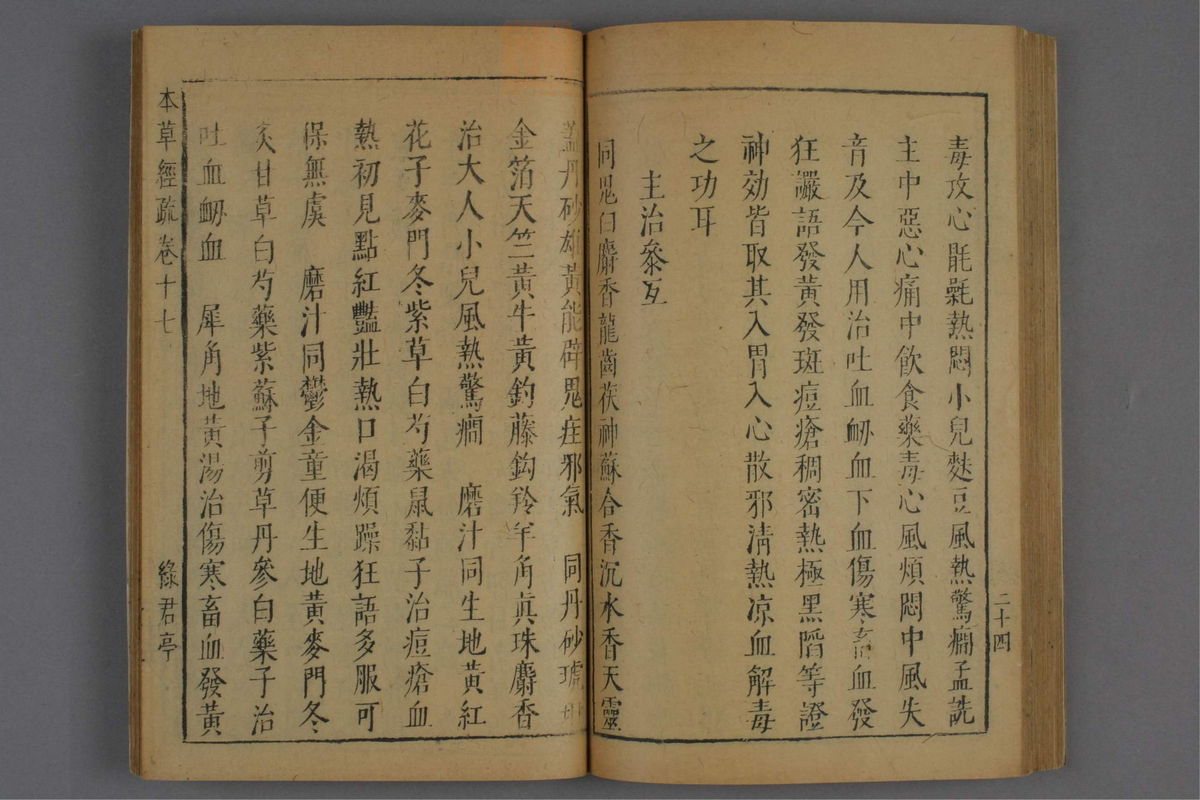 毒攻心毷氉熱悶小兒麩豆風熱驚癎孟詵
主中惡心痛中飲食藥毒心風煩悶中風失
音及今人用治吐血衂血下血傷寒畜血發
狂讝語發黃發斑痘瘡稠密熱極黑陷等證
神効皆取其入胃入心散邪清熱凉血解毒
之功耳
主治叅互
同鬼臼麝香龍齒茯神蘇合香沉水香天靈
蓋丹砂雄黃能辟鬼疰邪氣 同丹砂琥珀
金箔天竺黃牛黃釣藤鈎羚羊角眞珠麝香
治大人小兒風熱驚癎 磨汁同生地黃紅
花子麥門冬紫草白芍藥鼠黏子治痘瘡血
熱初見點紅豔壯熱口渴煩躁狂語多服可
保無虞 磨汁同鬱金童便生地黃麥門冬
炙甘草白芍藥紫蘇子剪草丹參白藥子治
吐血衂血 犀角地黃湯治傷寒畜血發黃
本草經疏卷十七 綠君亭
二十四